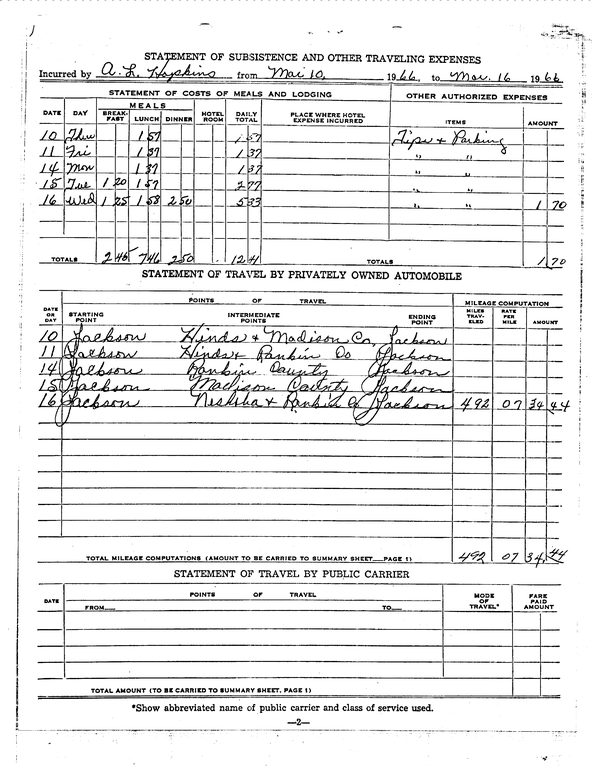 STATEMENT OF SUBSISTENCE AND OTHER TRAVELING EXPENSES
Incurred by A. L. Hopkins from Mar 10, 1966, to Mar. 16 1966
STATEMENT OF COSTS OF MEALS AND LODGING OTHER AUTHORIZED EXPENSES
DATE DAY MEALS BREAK-FAST LUNCH DINNER HOTEL ROOM DAILY TOTAL PLACE WHERE HOTEL EXPENSE INCURRED ITEMS AMOUNT
10 Thu 1 57 1 57 Tips & Parking
11 Fri 1 37 1 37 " "
14 Mon 1 37 1 37 " "
15 Tue 1 20 1 57 2 77 " "
16 Wed 1 25 1 58 2 50 5 33 " " 1 70
TOTALS 2 45 7 46 2 50 12 41 TOTALS 1 70
STATEMENT OF TRAVEL BY PRIVATELY OWNED AUTOMOBILE
DATE OR DAY POINTS OF TRAVEL MILEAGE COMPUTATION
STARTING POINT INTERMEDIATE POINTS ENDING POINT MILES TRAV-ELED RATE PER MILE AMOUNT
10 Jackson Hinds & Madison Co, Jackson
11 Jackson Hinds & Rankin Co Jackson
14 Jackson Rankin County Jackson
15 Jackson Madison County Jackson
16 Jackson Neshoba & Rankin Co Jackson 492 07 34 44
TOTAL MILEAGE COMPUTATIONS (AMOUNT TO BE CARRIED TO SUMMARY SHEET PAGE 1) 492 07 34.44
STATEMENT OF TRAVEL BY PUBLIC CARRIER
DATE POINTS OF TRAVEL MODE OF TRAVEL* FARE PAID AMOUNT
FROM TO
TOTAL AMOUNT (TO BE CARRIED TO SUMMARY SHEET. PAGE 1)
*Show abbreviated name of public carrier and class of service used.
—2—